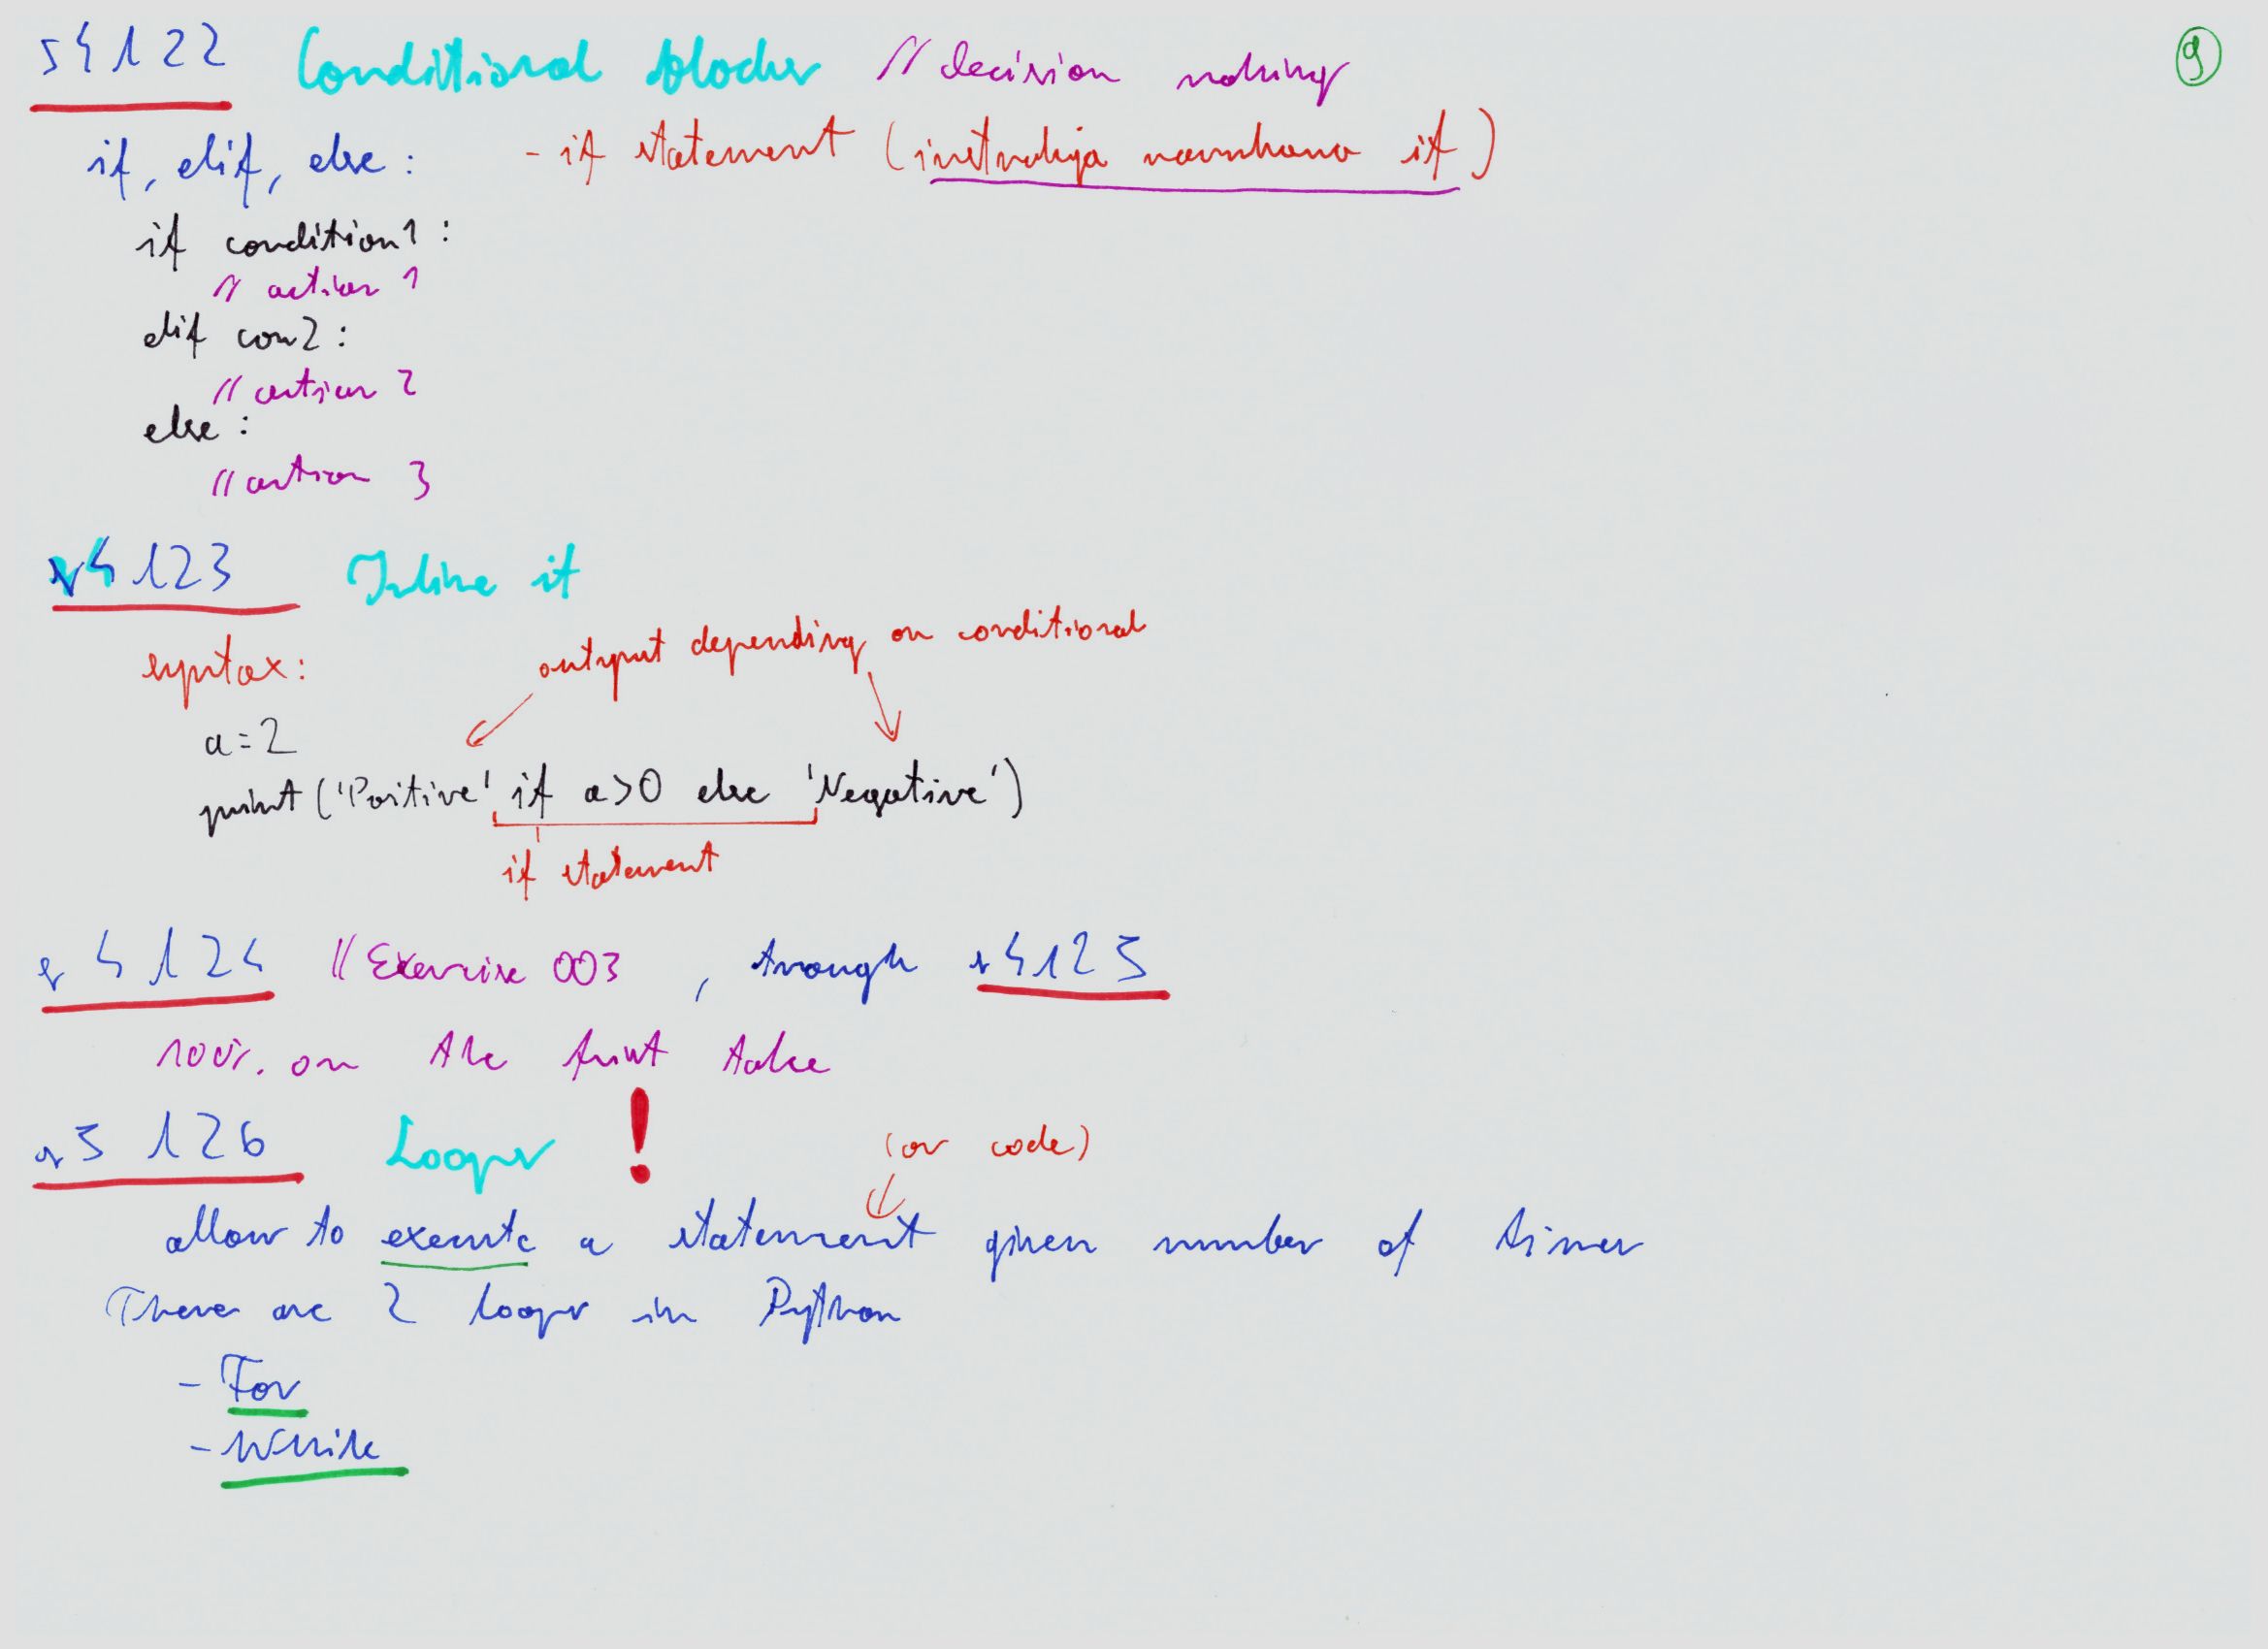 s4 122 Conditional blocks // decision making 9
if, elif, else: - if statement (instrukcja warunkowa if)
if condition1:
// action 1
elif con2:
// action 2
else:
// action 3
s4 123 Inline if
output depending on conditional
syntax:
a=2
print('Positive' if a>0 else 'Negative')
if statement
s4 124 // Exercise 003, trough s4 125
100% on the first take
s5 126 Loops !
(or code)
allow to execute a statement given number of times
There are 2 loops in Python
- For
- While